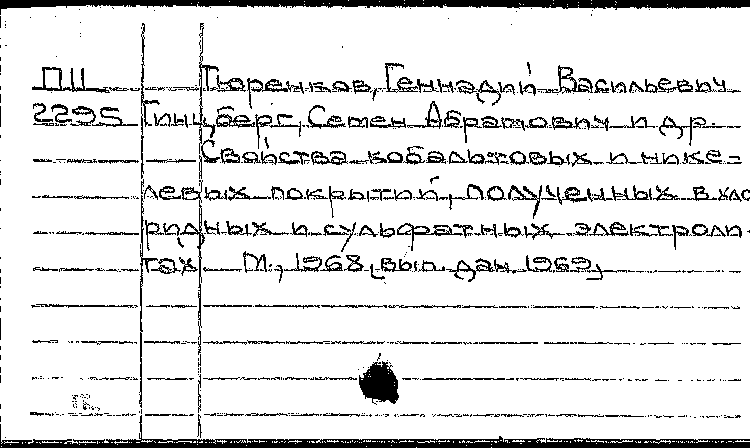 П11 Тюренков, Геннадий Васильевич
2295 Гинцберг, Семен Абрамович и др.
Свойства кобальтовых и нике=
левых покрытий, полученных в хло
ридных и сульфатных электроли-
тах. М., 1968, вып. дан. 1969,